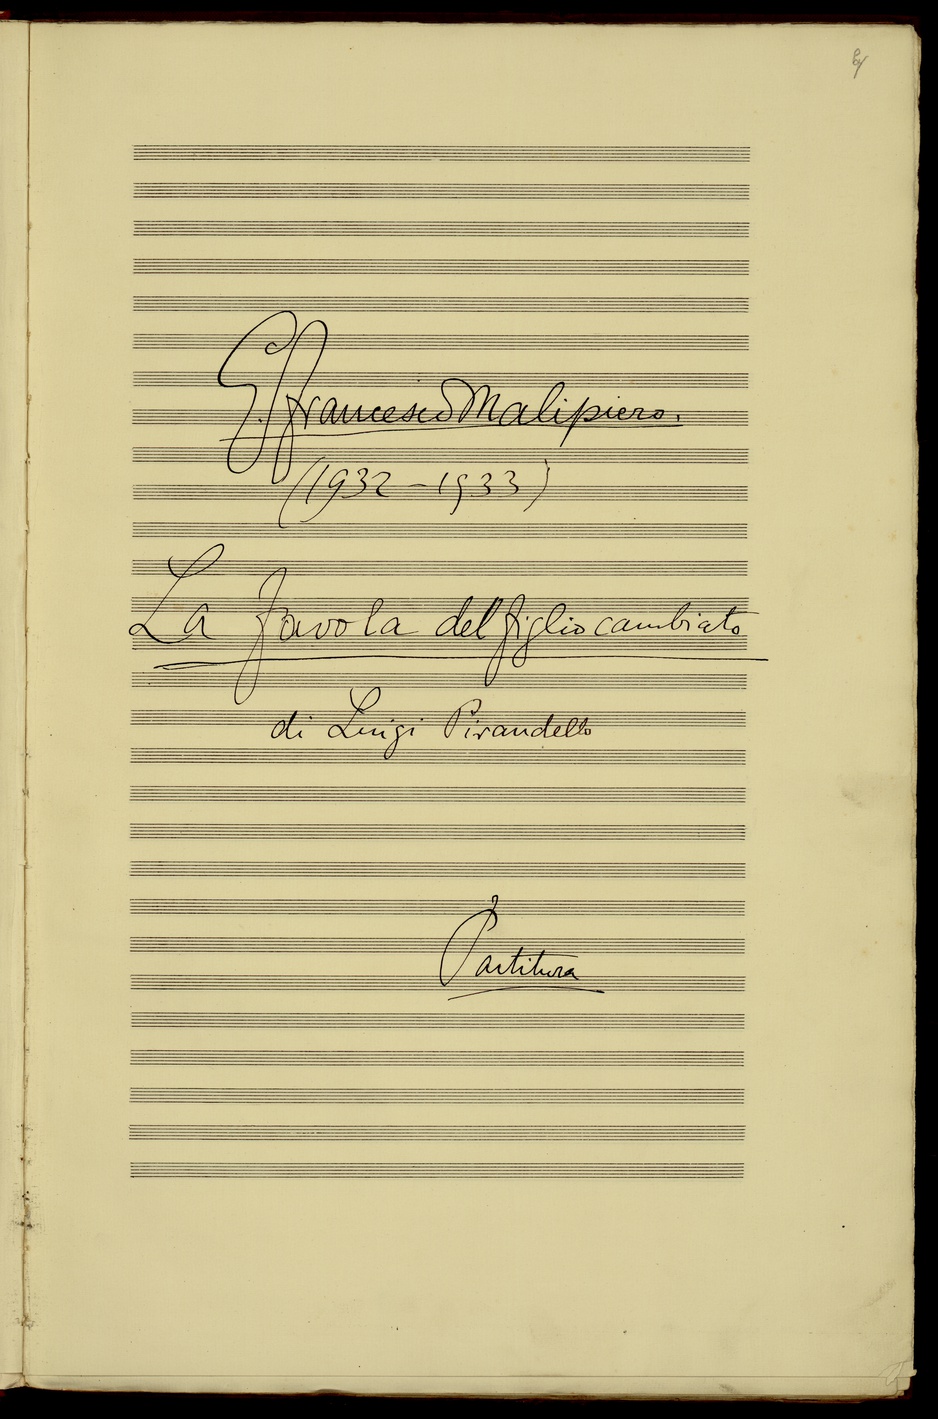 G. Francesco Malipiero.
(1932 - 1933)
La favola del figlio cambiato
di Luigi Pirandello
Partitura